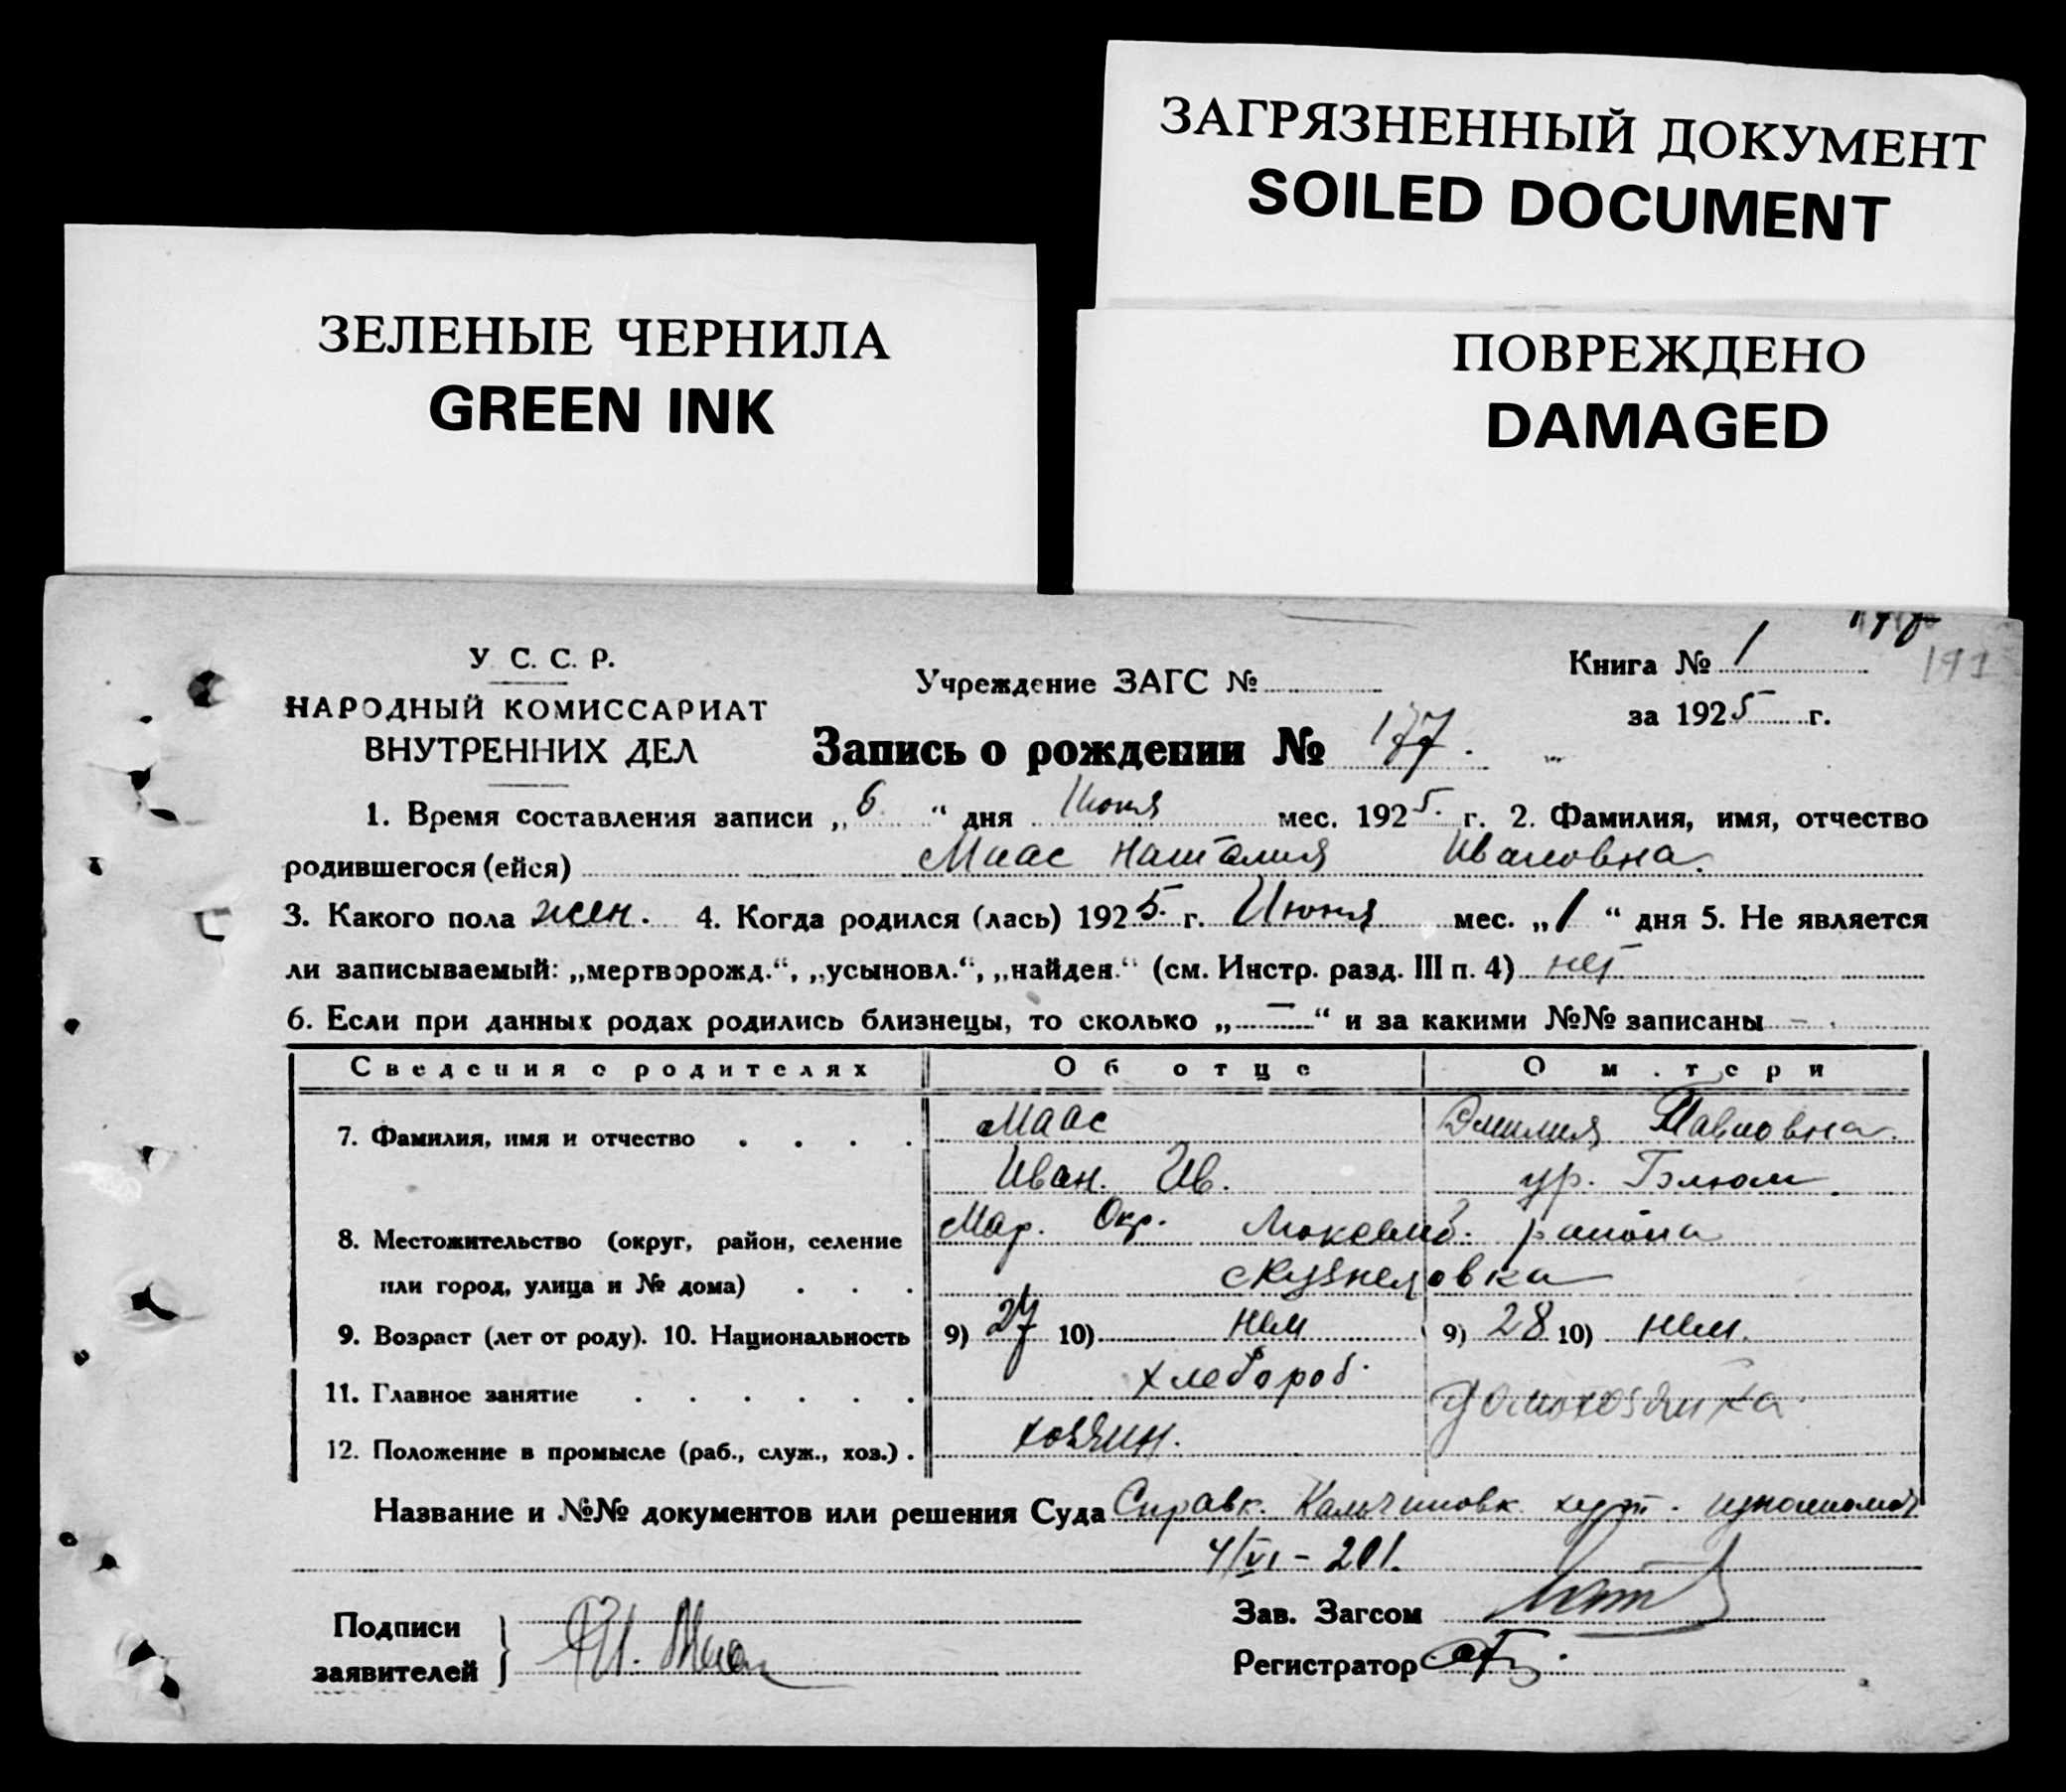 ЗАГРЯЗНЕННЫЙ ДОКУМЕНТ
SOILED DOCUMENT
ЗЕЛЕНЫЕ ЧЕРНИЛА
GREEN INK
ПОВРЕЖДЕНО
DAMAGED
У. С. С. Р.
НАРОДНЫЙ КОМИССАРИАТ
ВНУТРЕННИХ ДЕЛ
Учреждение ЗАГС №
Книга № 1
за 1925 г.
Запись о рождении № 177.
1. Время составления записи „6“ дня Июня мес. 1925. г. 2. Фамилия, имя, отчество
родившегося (ейся) Маас Наталия Ивановна.
3. Какого пола жен. 4. Когда родился (лась) 1925. г. Июня мес. „1“ дня 5. Не является
ли записываемый: „мертворожд.“, „усыновл.“, „найден.“ (см. Инстр. разд. III п. 4) нет
6. Если при данных родах родились близнецы, то сколько „—“ и за какими №№ записаны -
Сведения о родителях Об отце О матери
7. Фамилия, имя и отчество Маас Эмилия Павловна.
Иван. Ив. ур. Бэлюм.
8. Местожительство (округ, район, селение Мар. Окр. района
или город, улица и № дома)
9. Возраст (лет от роду). 10. Национальность 9) 27 10) нем 9) 28 10) нем.
11. Главное занятие хлебороб. домохозяйка.
12. Положение в промысле (раб., служ., хоз.) хозяин.
Название и №№ документов или решения Суда Справк. Кальчиновк. хут.
4/VI - 201.
Подписи
заявителей И. Маас
Зав. Загсом
Регистратор